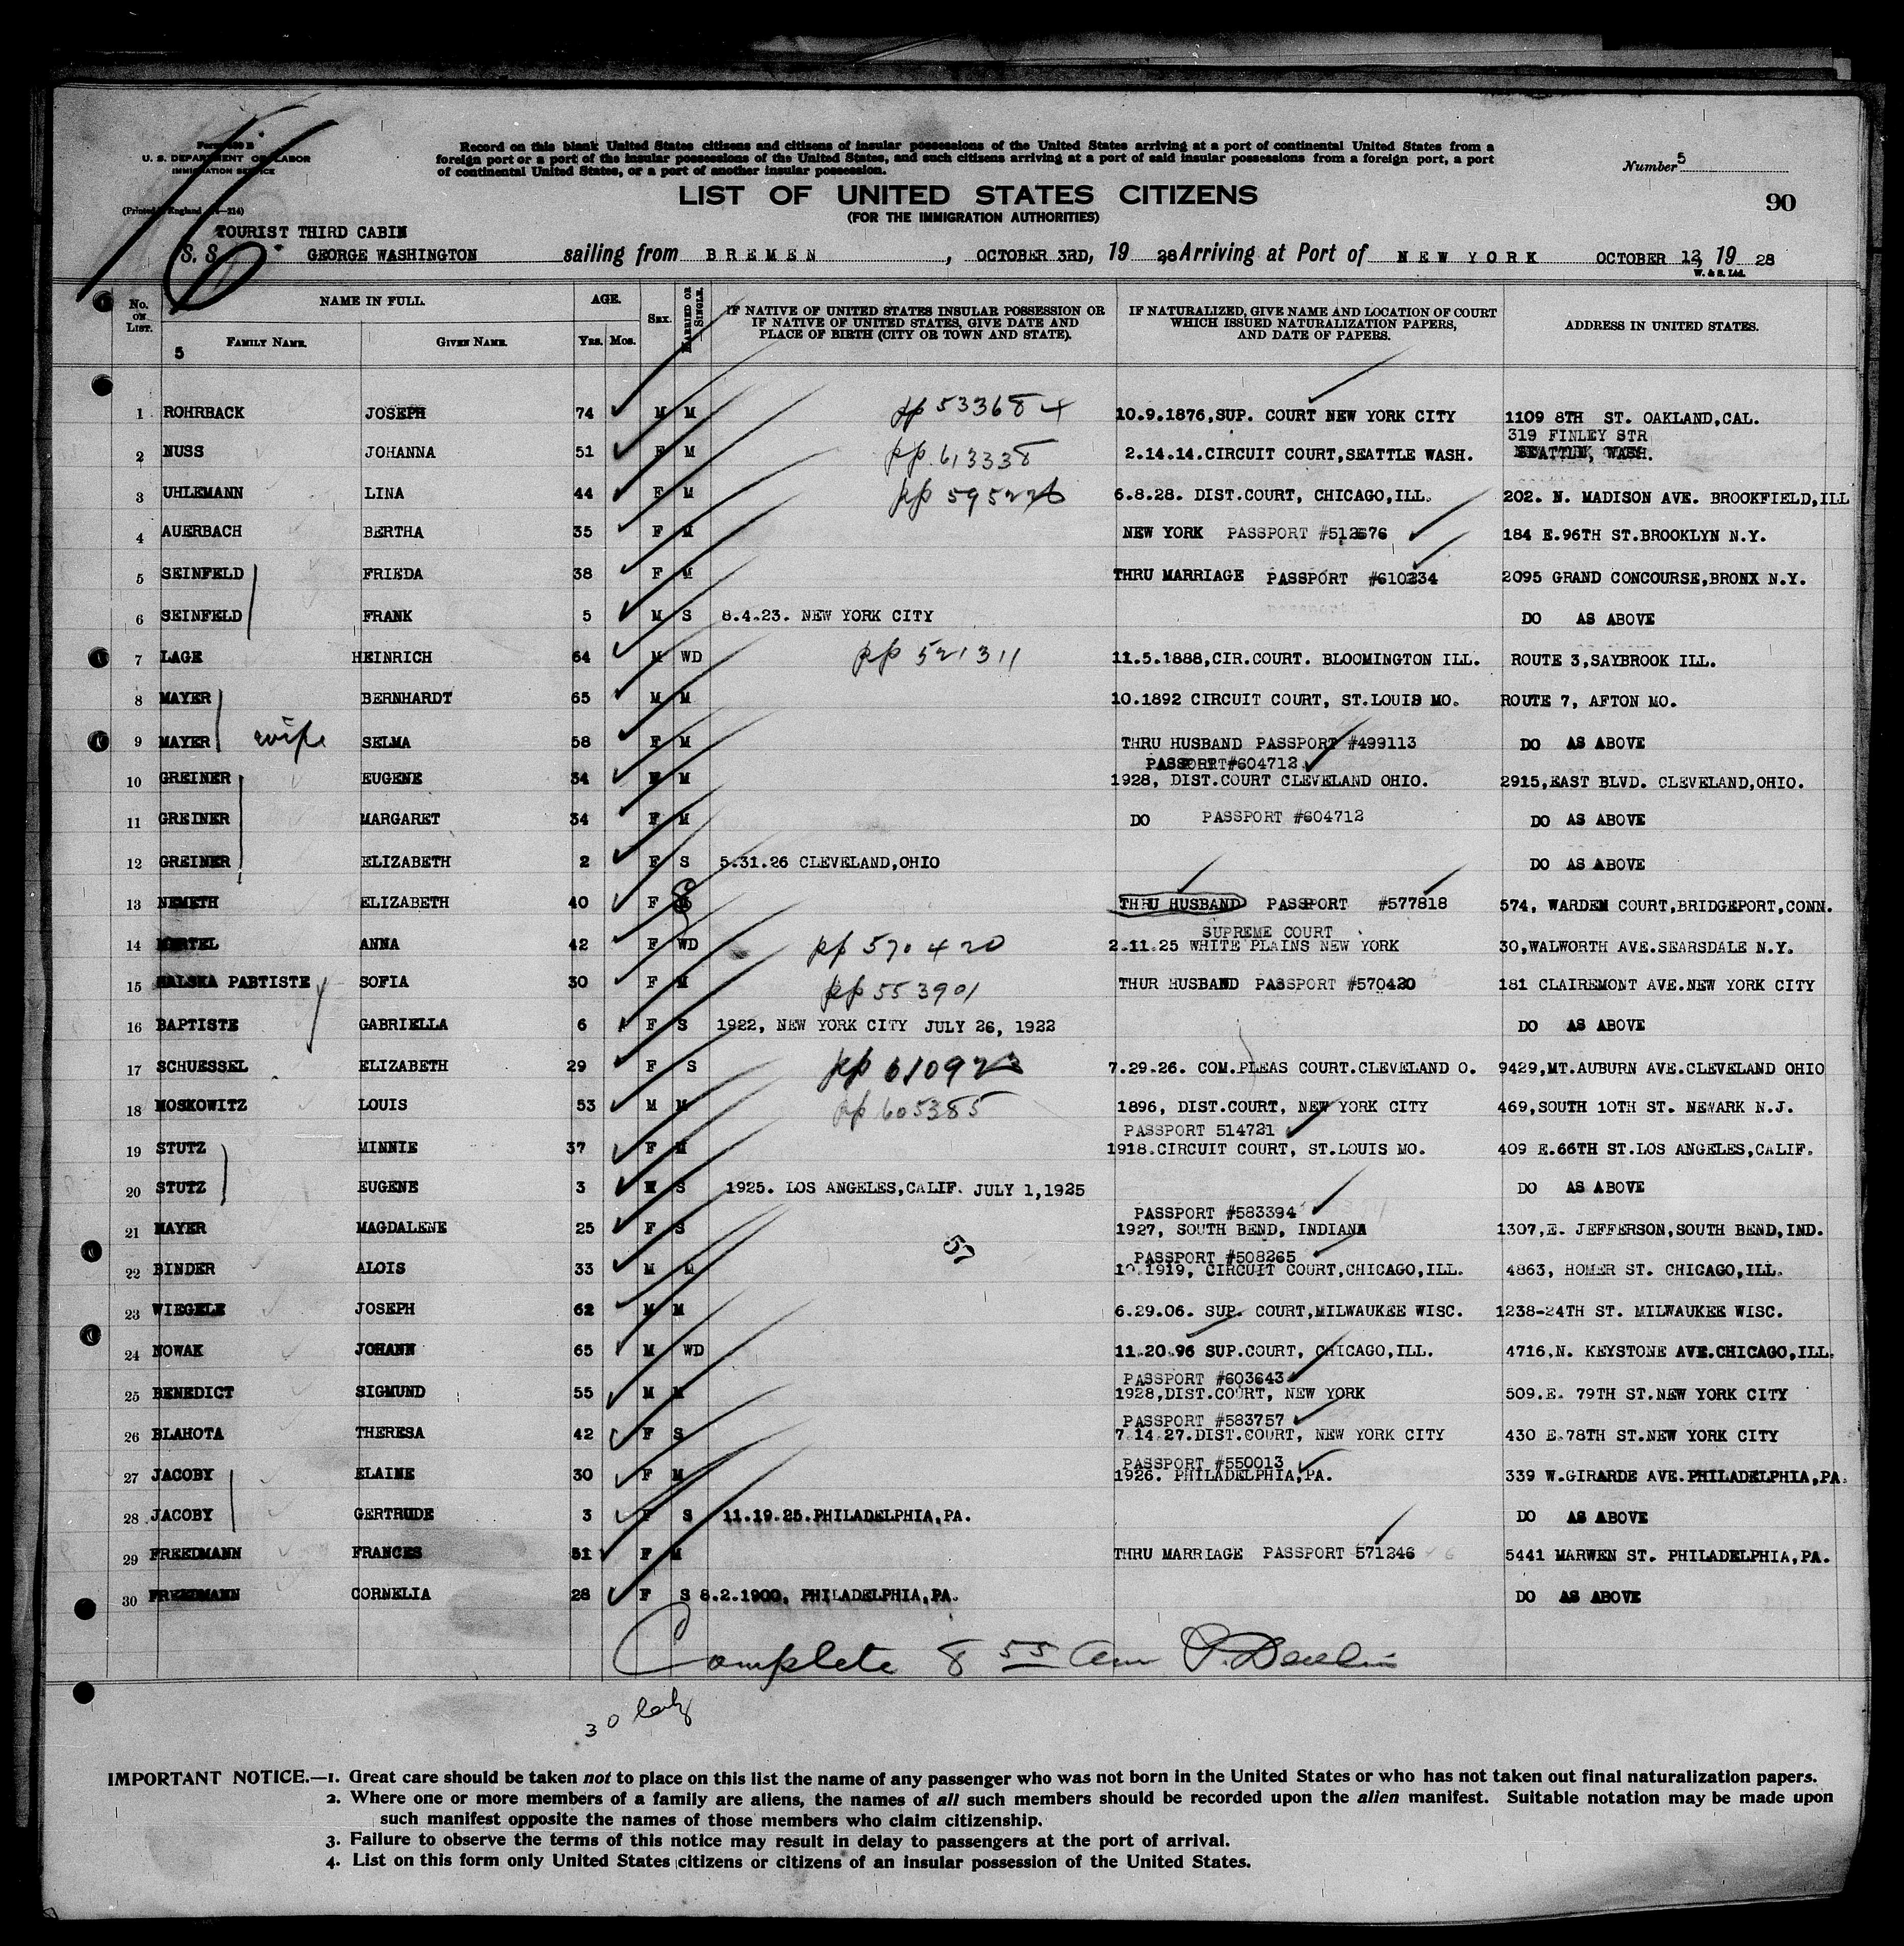 Form 500 B
U. S. DEPARTMENT OF LABOR
IMMIGRATION SERVICE
(Printed in England
Record on this blank United States citizens and citizens of insular possessions of the United States arriving at a port of continental United States from a
foreign port or a port of the insular possessions of the United States, and such citizens arriving at a port of said insular possessions from a foreign port, a port
of continental United States, or a port of another insular possession.
Number 5
LIST OF UNITED STATES CITIZENS
(FOR THE IMMIGRATION AUTHORITIES)
90
TOURIST THIRD CABIN
S. S. GEORGE WASHINGTON sailing from BREMEN, OCTOBER 3RD, 19 28 Arriving at Port of NEW YORK OCTOBER 12, 19 28
W. & S. Ltd.
No. ON LIST. NAME IN FULL. FAMILY NAME. GIVEN NAME. AGE. Yrs. Mos. SEX. MARRIED OR SINGLE. IF NATIVE OF UNITED STATES INSULAR POSSESSION OR IF NATIVE OF UNITED STATES, GIVE DATE AND PLACE OF BIRTH (CITY OR TOWN AND STATE). IF NATURALIZED, GIVE NAME AND LOCATION OF COURT WHICH ISSUED NATURALIZATION PAPERS, AND DATE OF PAPERS. ADDRESS IN UNITED STATES.
5
1 ROHRBACK JOSEPH 74 M M pp 533684 10.9.1876,SUP. COURT NEW YORK CITY 1109 8TH ST. OAKLAND,CAL.
319 FINLEY STR
2 NUSS JOHANNA 51 F M pp. 613338 2.14.14.CIRCUIT COURT,SEATTLE WASH. SEATTLE, WASH.
3 UHLEMANN LINA 44 F M pp 6.8.28. DIST.COURT, CHICAGO,ILL. 202. N. MADISON AVE. BROOKFIELD,ILL
4 AUERBACH BERTHA 35 F M NEW YORK PASSPORT #512576 184 E.96TH ST.BROOKLYN N.Y.
5 SEINFELD FRIEDA 38 F M THRU MARRIAGE PASSPORT #610234 2095 GRAND CONCOURSE,BRONX N.Y.
6 SEINFELD FRANK 5 M S 8.4.23. NEW YORK CITY DO AS ABOVE
7 LAGE HEINRICH 64 M WD pp 521311 11.5.1888,CIR.COURT. BLOOMINGTON ILL. ROUTE 3,SAYBROOK ILL.
8 MAYER BERNHARDT 65 M M 10.1892 CIRCUIT COURT, ST.LOUIS MO. ROUTE 7, AFTON MO.
9 MAYER wife SELMA 58 F M THRU HUSBAND PASSPORT #499113 DO AS ABOVE
PASSPORT#604712
10 GREINER EUGENE 34 M M 1928, DIST.COURT CLEVELAND OHIO. 2915,EAST BLVD. CLEVELAND,OHIO.
11 GREINER MARGARET 34 F M DO PASSPORT #604712 DO AS ABOVE
12 GREINER ELIZABETH 2 F S 5.31.26 CLEVELAND,OHIO DO AS ABOVE
13 NEMETH ELIZABETH 40 F S THRU HUSBAND PASSPORT #577818 574, WARDEN COURT,BRIDGEPORT,CONN.
SUPREME COURT
14 ANNA 42 F WD pp 570420 2.11.25 WHITE PLAINS NEW YORK 30,WALWORTH AVE.SEARSDALE N.Y.
15 PABTISTE SOFIA 30 F M pp 553901 THUR HUSBAND PASSPORT #570420 181 CLAIREMONT AVE.NEW YORK CITY
16 BAPTISTE GABRIELLA 6 F S 1922, NEW YORK CITY JULY 26, 1922 DO AS ABOVE
17 SCHUESSEL ELIZABETH 29 F S pp 7.29.26. COM.PLEAS COURT.CLEVELAND O. 9429,MT.AUBURN AVE.CLEVELAND OHIO
18 MOSKOWITZ LOUIS 53 M M pp 605385 1896, DIST.COURT, NEW YORK CITY 469,SOUTH 10TH ST. NEWARK N.J.
PASSPORT 514721
19 STUTZ MINNIE 37 F M 1918.CIRCUIT COURT, ST.LOUIS MO. 409 E.66TH ST.LOS ANGELES,CALIF.
20 STUTZ EUGENE 3 M S 1925. LOS ANGELES,CALIF. JULY 1,1925 DO AS ABOVE
PASSPORT #583394
21 MAYER MAGDALENE 25 F S 1927, SOUTH BEND, INDIANA 1307,E. JEFFERSON,SOUTH BEND,IND.
57
PASSPORT #508265
22 BINDER ALOIS 33 M M 10.1919, CIRCUIT COURT,CHICAGO,ILL. 4863, HOMER ST. CHICAGO,ILL.
23 WIEGELE JOSEPH 62 M M 6.29.06. SUP. COURT,MILWAUKEE WISC. 1238-24TH ST. MILWAUKEE WISC.
24 NOWAK JOHANN 65 M WD 11.20.96 SUP.COURT, CHICAGO,ILL. 4716,N. KEYSTONE AVE.CHICAGO,ILL.
PASSPORT #603643
25 BENEDICT SIGMUND 55 M M 1928,DIST.COURT, NEW YORK 509.E. 79TH ST.NEW YORK CITY
PASSPORT #583757
26 BLAHOTA THERESA 42 F S 7.14.27.DIST.COURT, NEW YORK CITY 430 E.78TH ST.NEW YORK CITY
PASSPORT #550013
27 JACOBY ELAINE 30 F M 1926. PHILADELPHIA,PA. 339 W.GIRARDE AVE.PHILADELPHIA,PA.
28 JACOBY GERTRUDE 3 F S 11.19.25.PHILADELPHIA,PA. DO AS ABOVE
29 FREEDMANN FRANCES 51 F M THRU MARRIAGE PASSPORT 571246 5441 MARWEN ST. PHILADELPHIA,PA.
30 FREEDMANN CORNELIA 28 F S 8.2.1900, PHILADELPHIA,PA. DO AS ABOVE
Complete 8 55 am P. Devlin
30
IMPORTANT NOTICE.—1. Great care should be taken not to place on this list the name of any passenger who was not born in the United States or who has not taken out final naturalization papers.
2. Where one or more members of a family are aliens, the names of all such members should be recorded upon the alien manifest. Suitable notation may be made upon
such manifest opposite the names of those members who claim citizenship.
3. Failure to observe the terms of this notice may result in delay to passengers at the port of arrival.
4. List on this form only United States citizens or citizens of an insular possession of the United States.